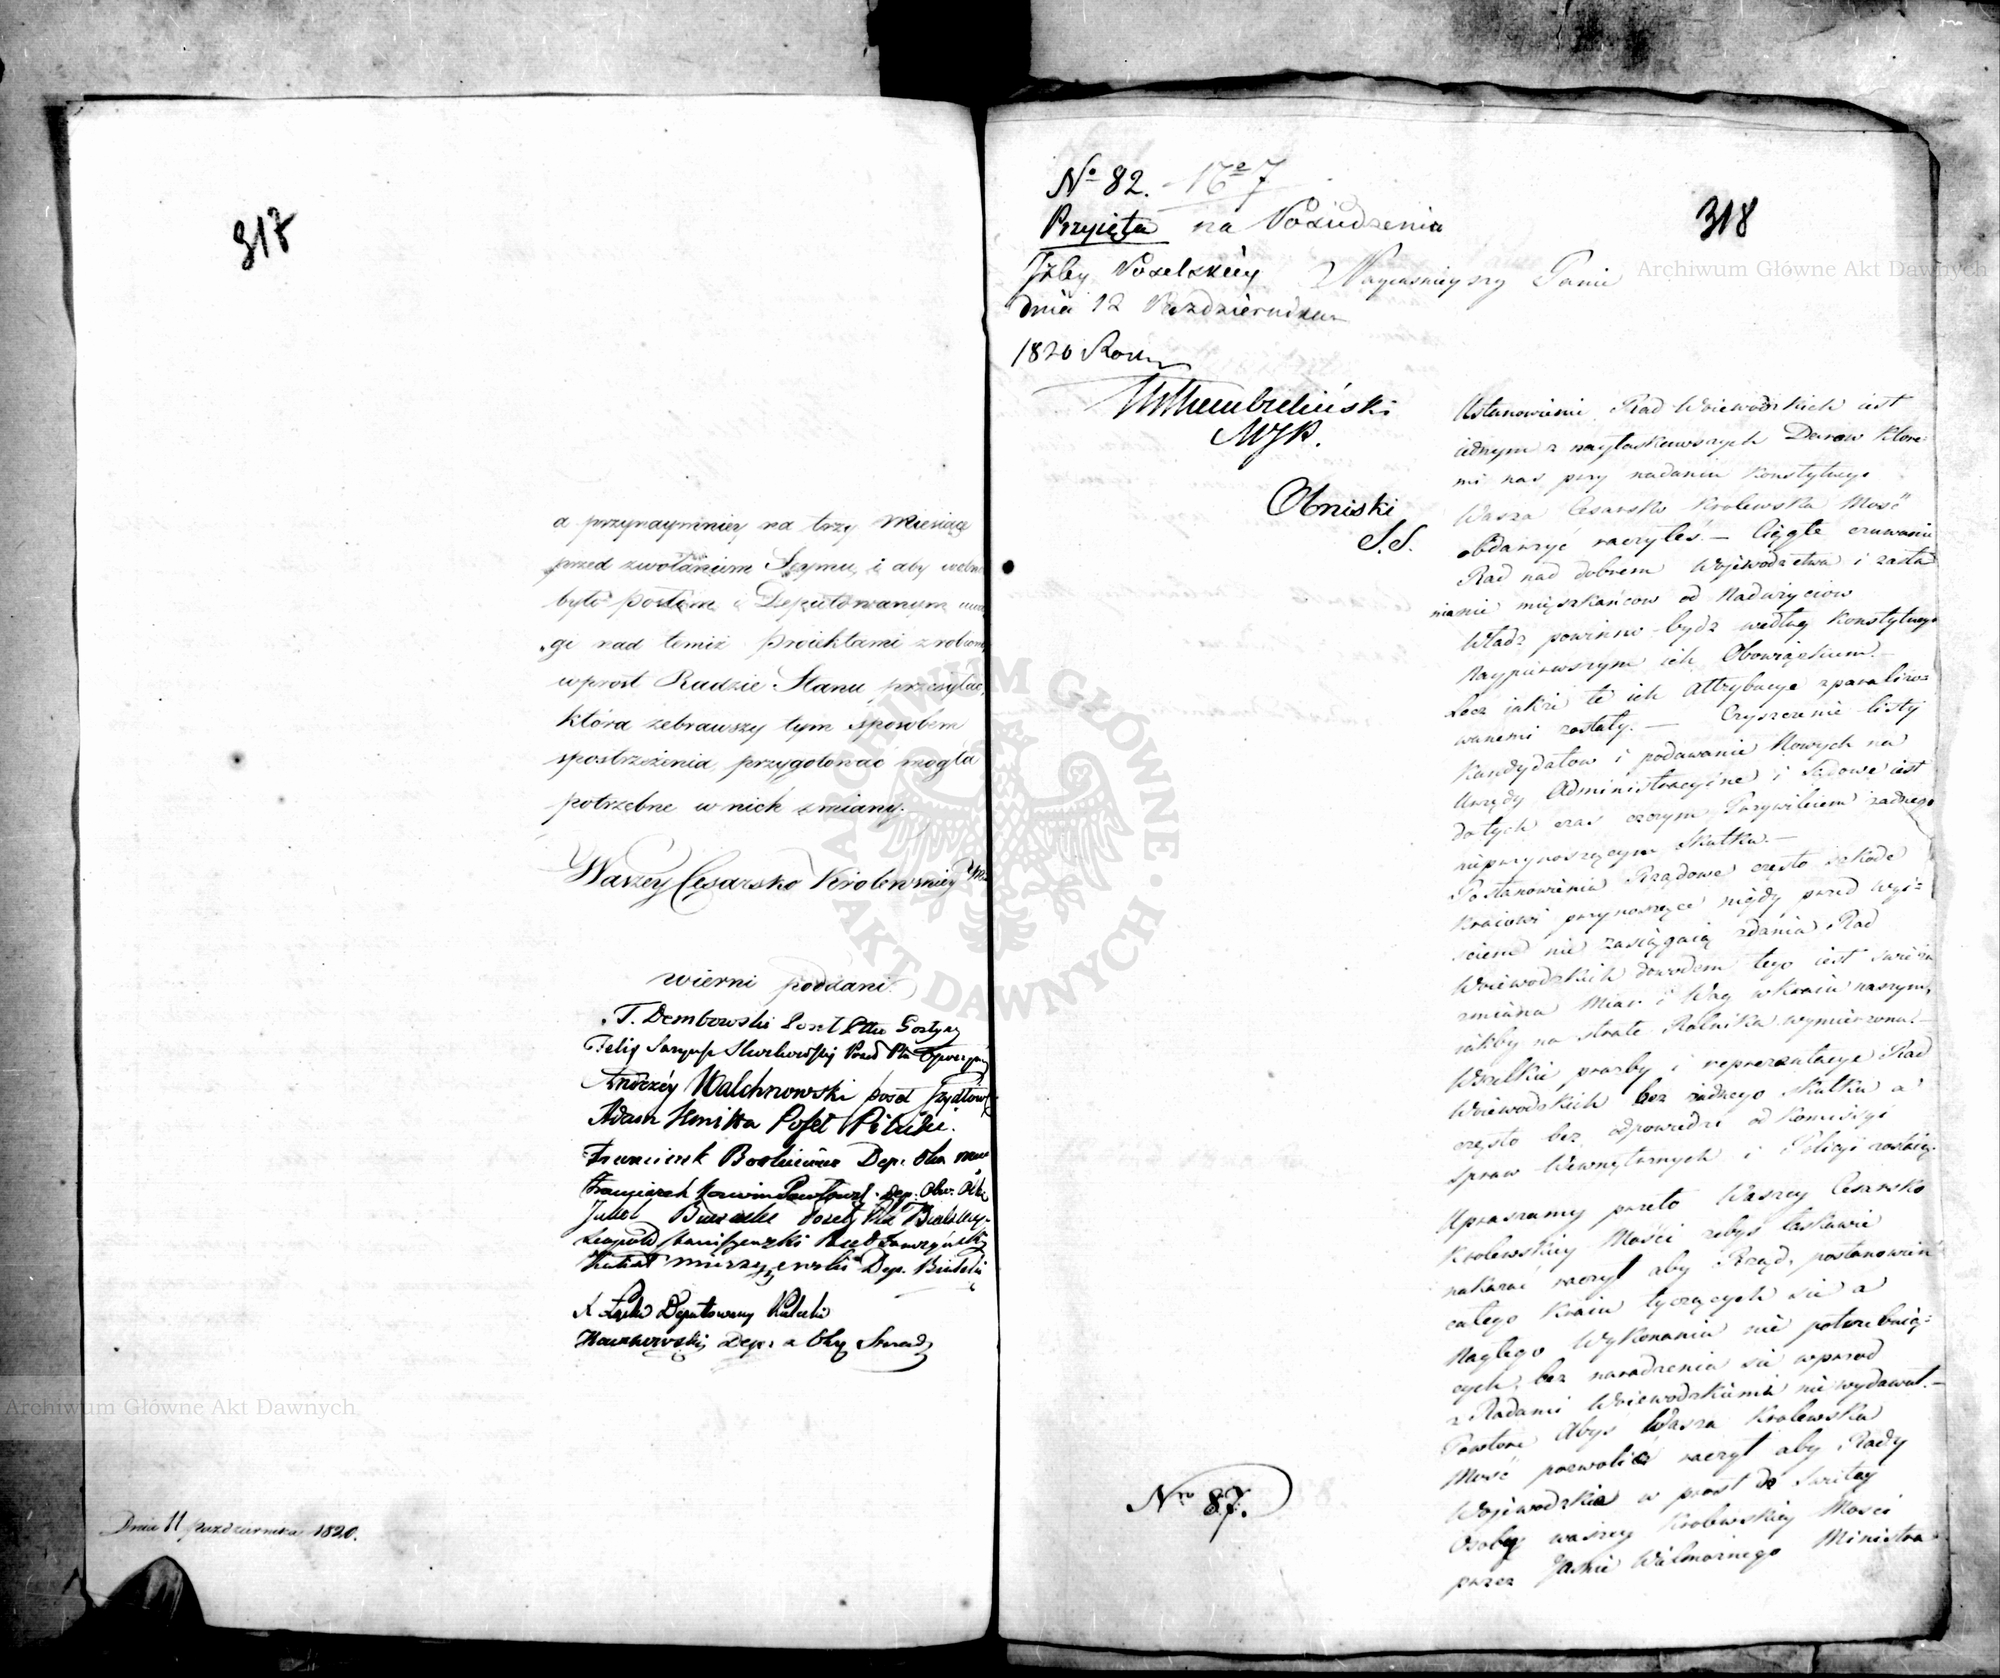 317
a przynaymniey na trzy Miesiące
przed zwołaniem Seymu, i aby wolno
było Posłom i Deputowanym uwa
gi nad temiż Proiektami zrobione,
wprost Radzie Stanu przesyłać,
która zebrawszy tym sposobem
spostrzeżenia, przygotować mogła
potrzebne w nich zmiany.
Waszey Cesarsko Krolewskiey
wierni poddani.
T. Dembowski Poseł Gostyn
Felix Poseł
Andrzey Walchnowski poseł
Adam Kmitta Poseł Pilicki.
Franciszek Dep.
Franciszek Dep. Okr.
Jakób Poseł
Leopold Poseł
Dep.
Deputowany
Dep. z
Dnia 11 Października 1820.
No 82.
318
Przyięta na Posiedzeniu
Izby Poselskiey
Nayiaśnieyszy Panie
dnia 12 Października
1820 Roku
MJP.
Obniski
S.S.
Ustanowienie Rad Woiewódzkich iest
iednym z nayłaskawszych Darów któré
mi nas przy nadaniu Konstytucyi
Wasza Cesarsko Krolewska Mość
obdarzyć raczyłeś. — Ciągłe czuwanie
Rad nad dobrem Woiewodztwa i zasła
nianie mięszkańcow od Nadużyciow
Władz powinno bydz według Konstytucyi
Naypierwszym ich Obowiązkiem. —
Lecz iakże te ich Attrybucye sparaliżo=
wanemi zostały. — Czyszczenie listy
Kandydatow i podawanie Nowych na
Urzędy Administracyine i Sądowe iest
do tych czas czczym Przywileiem żadnego
nieprzynoszącym Skutku. —
Postanowienia Rządowe często szkodę
Kraiowi przynoszące nigdy przed wyi=
ściem nie zasięgaią zdania Rad
Woiewodzkich dowodem tego iest świeża
zmiana Miar i Wag w kraiu naszym,
iakby na stratę Rolnika wymierzona. —
Wszelkie prozby i reprezentacye Rad
Woiewodzkich bez żadnego skutku a
często bez odpowiedzi od Komissyi
Spraw Wewnętrznych i Policyi
Upraszamy przeto Waszey Cesarsko
Krolewskiey Mości żebyś łaskawie
nakazać raczył aby Rząd, postanowień
całego Kraiu tyczących się a
Nagłego Wykonania nie potrzebuią=
cych, bez naradzenia się wprzod
z Radami Woiewodzkiemi nie wydawał. —
Powtore Abyś Wasza Krolewska
Mość pozwolić raczył aby Rady
Woiewodzkie w prost do Swiętey
Osoby waszey Krolewskiey Mości
przez Jaśnie Wielmożnego Ministra
Nro 87.
Archiwum Główne Akt Dawnych
Archiwum Główne Akt Dawnych
ARCHIWUM GŁÓWNE AKT DAWNYCH